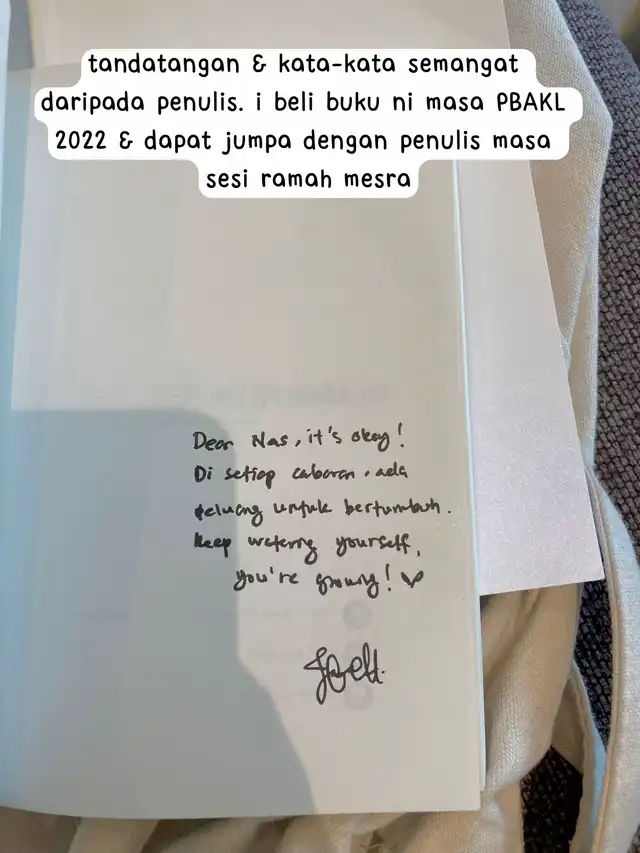 tandatangan & kata-kata semangat
daripada penulis. i beli buku ni masa PBAKL
2022 & dapat jumpa dengan penulis masa
sesi ramah mesra
Dear Nas, it's okay!
Di setiap cabaran, ada
peluang untuk bertumbuh.
keep watering yourself,
you're growing!